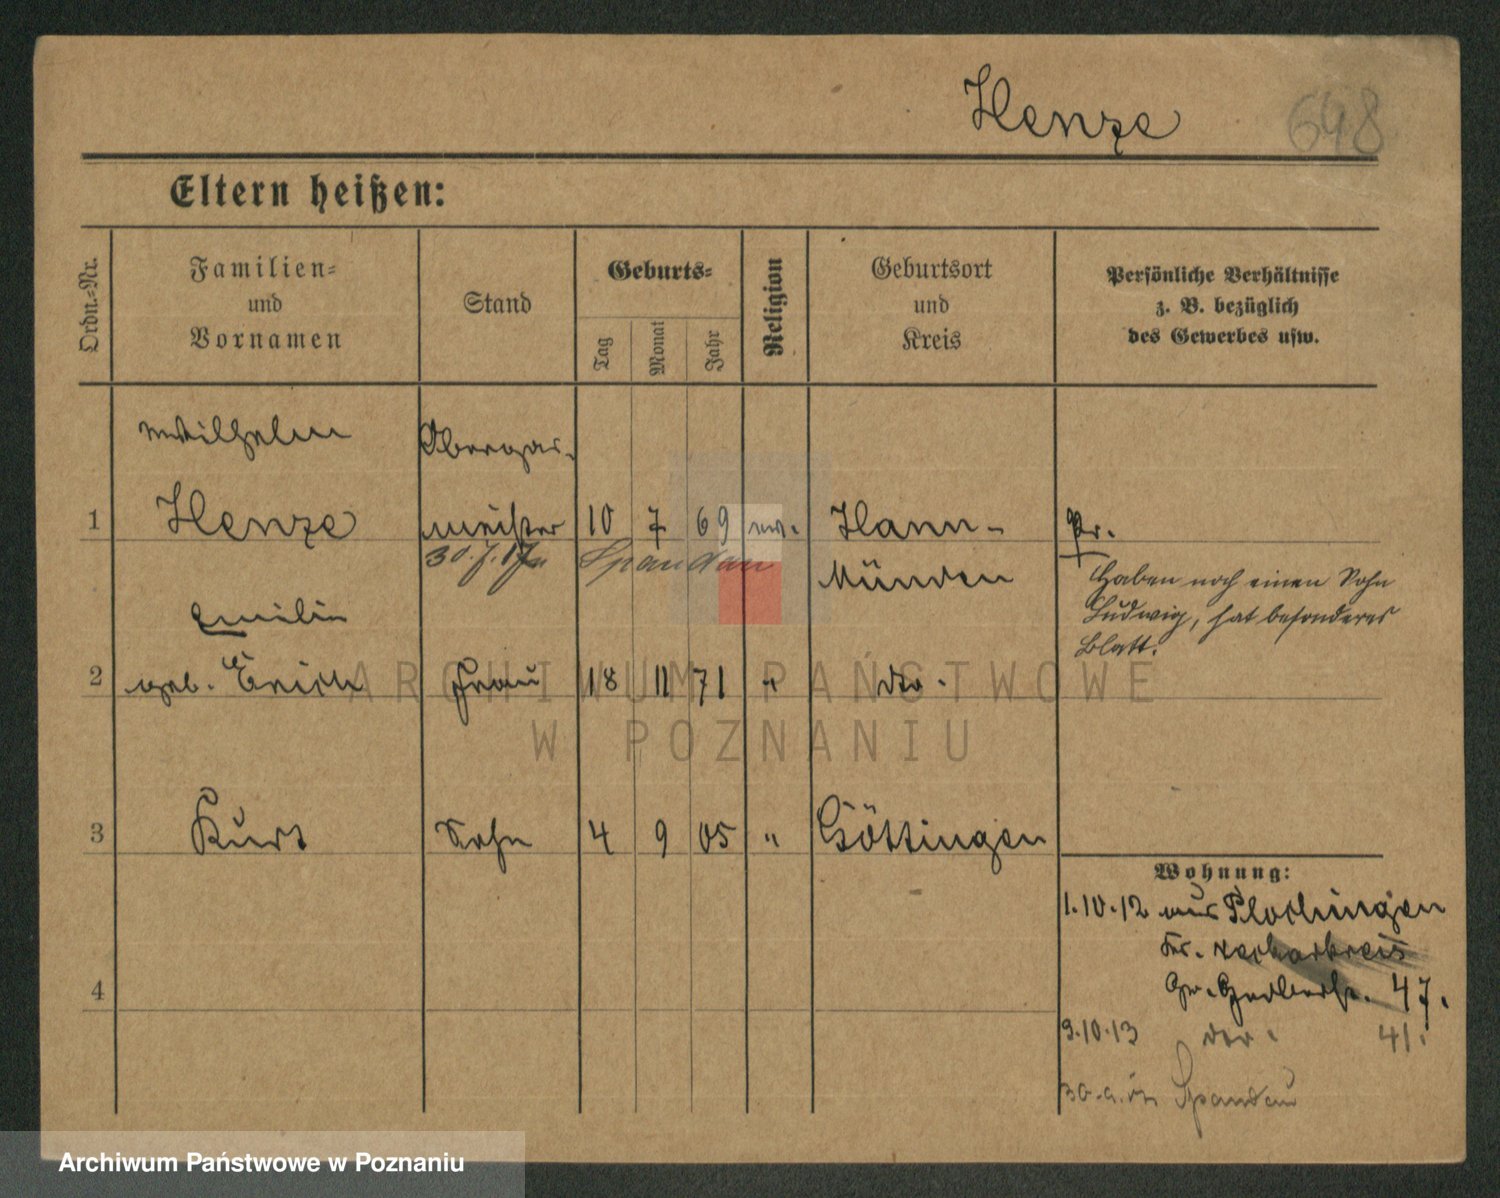 Henze 698
Eltern heißen:
Ordn.-Nr.
Familien-
und
Vornamen
Stand
Geburts-
Tag
Monat
Jahr
Religion
Geburtsort
und
Kreis
Persönliche Verhältnisse
z. B. bezüglich
des Gewerbes usw.
Wilhelm
1 Henze meister 10 7 69 ev. Hann- Pr.
Spandau Münden
Haben noch einen Sohn
Ludwig, hat besonderes
Blatt.
Emilie
2 geb. Frau 18 11 71 " do.
3 Kurt Sohn 4 9 05 " Göttingen
4
Wohnung:
1.10.12 aus Plochingen
Kr.
47.
9.10.13 do. 41.
Spandau
ARCHIWUM PAŃSTWOWE
W POZNANIU
Archiwum Państwowe w Poznaniu